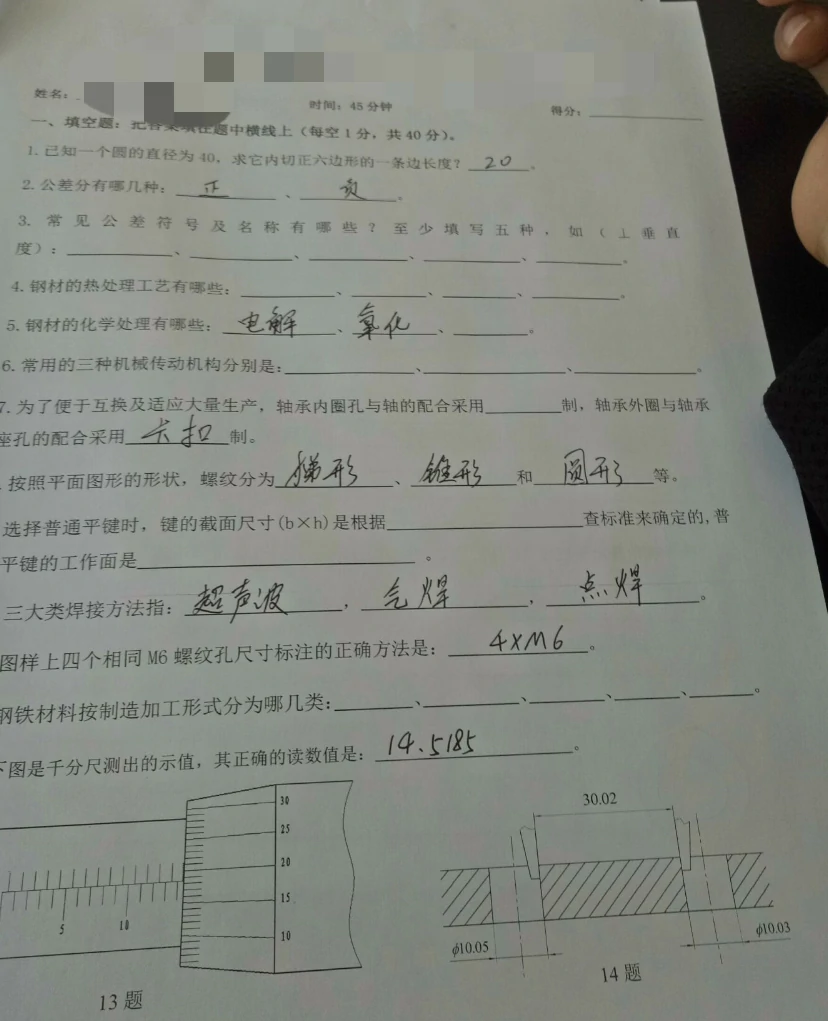 姓名：
时间：45分钟
得分：
一、填空题：把答案填在题中横线上（每空1分，共40分）。
1. 已知一个圆的直径为40，求它内切正六边形的一条边长度？20。
2. 公差分有哪几种：正、负。
3. 常见公差符号及名称有哪些？至少填写五种，如（⊥垂直
度）：、、、、。
4. 钢材的热处理工艺有哪些：、、、。
5. 钢材的化学处理有哪些：电解、氧化、。
6. 常用的三种机械传动机构分别是：、、。
7. 为了便于互换及适应大量生产，轴承内圈孔与轴的配合采用制，轴承外圈与轴承
座孔的配合采用卡扣制。
. 按照平面图形的形状，螺纹分为梯形、锥形和圆形等。
选择普通平键时，键的截面尺寸(b×h)是根据查标准来确定的,普
平键的工作面是。
三大类焊接方法指：超声波，气焊，点焊。
图样上四个相同M6螺纹孔尺寸标注的正确方法是：4×M6。
钢铁材料按制造加工形式分为哪几类：、、、、。
下图是千分尺测出的示值，其正确的读数值是：14.5185。
30
25
20
15
10
5
10
13题
30.02
ϕ10.05
ϕ10.03
14题